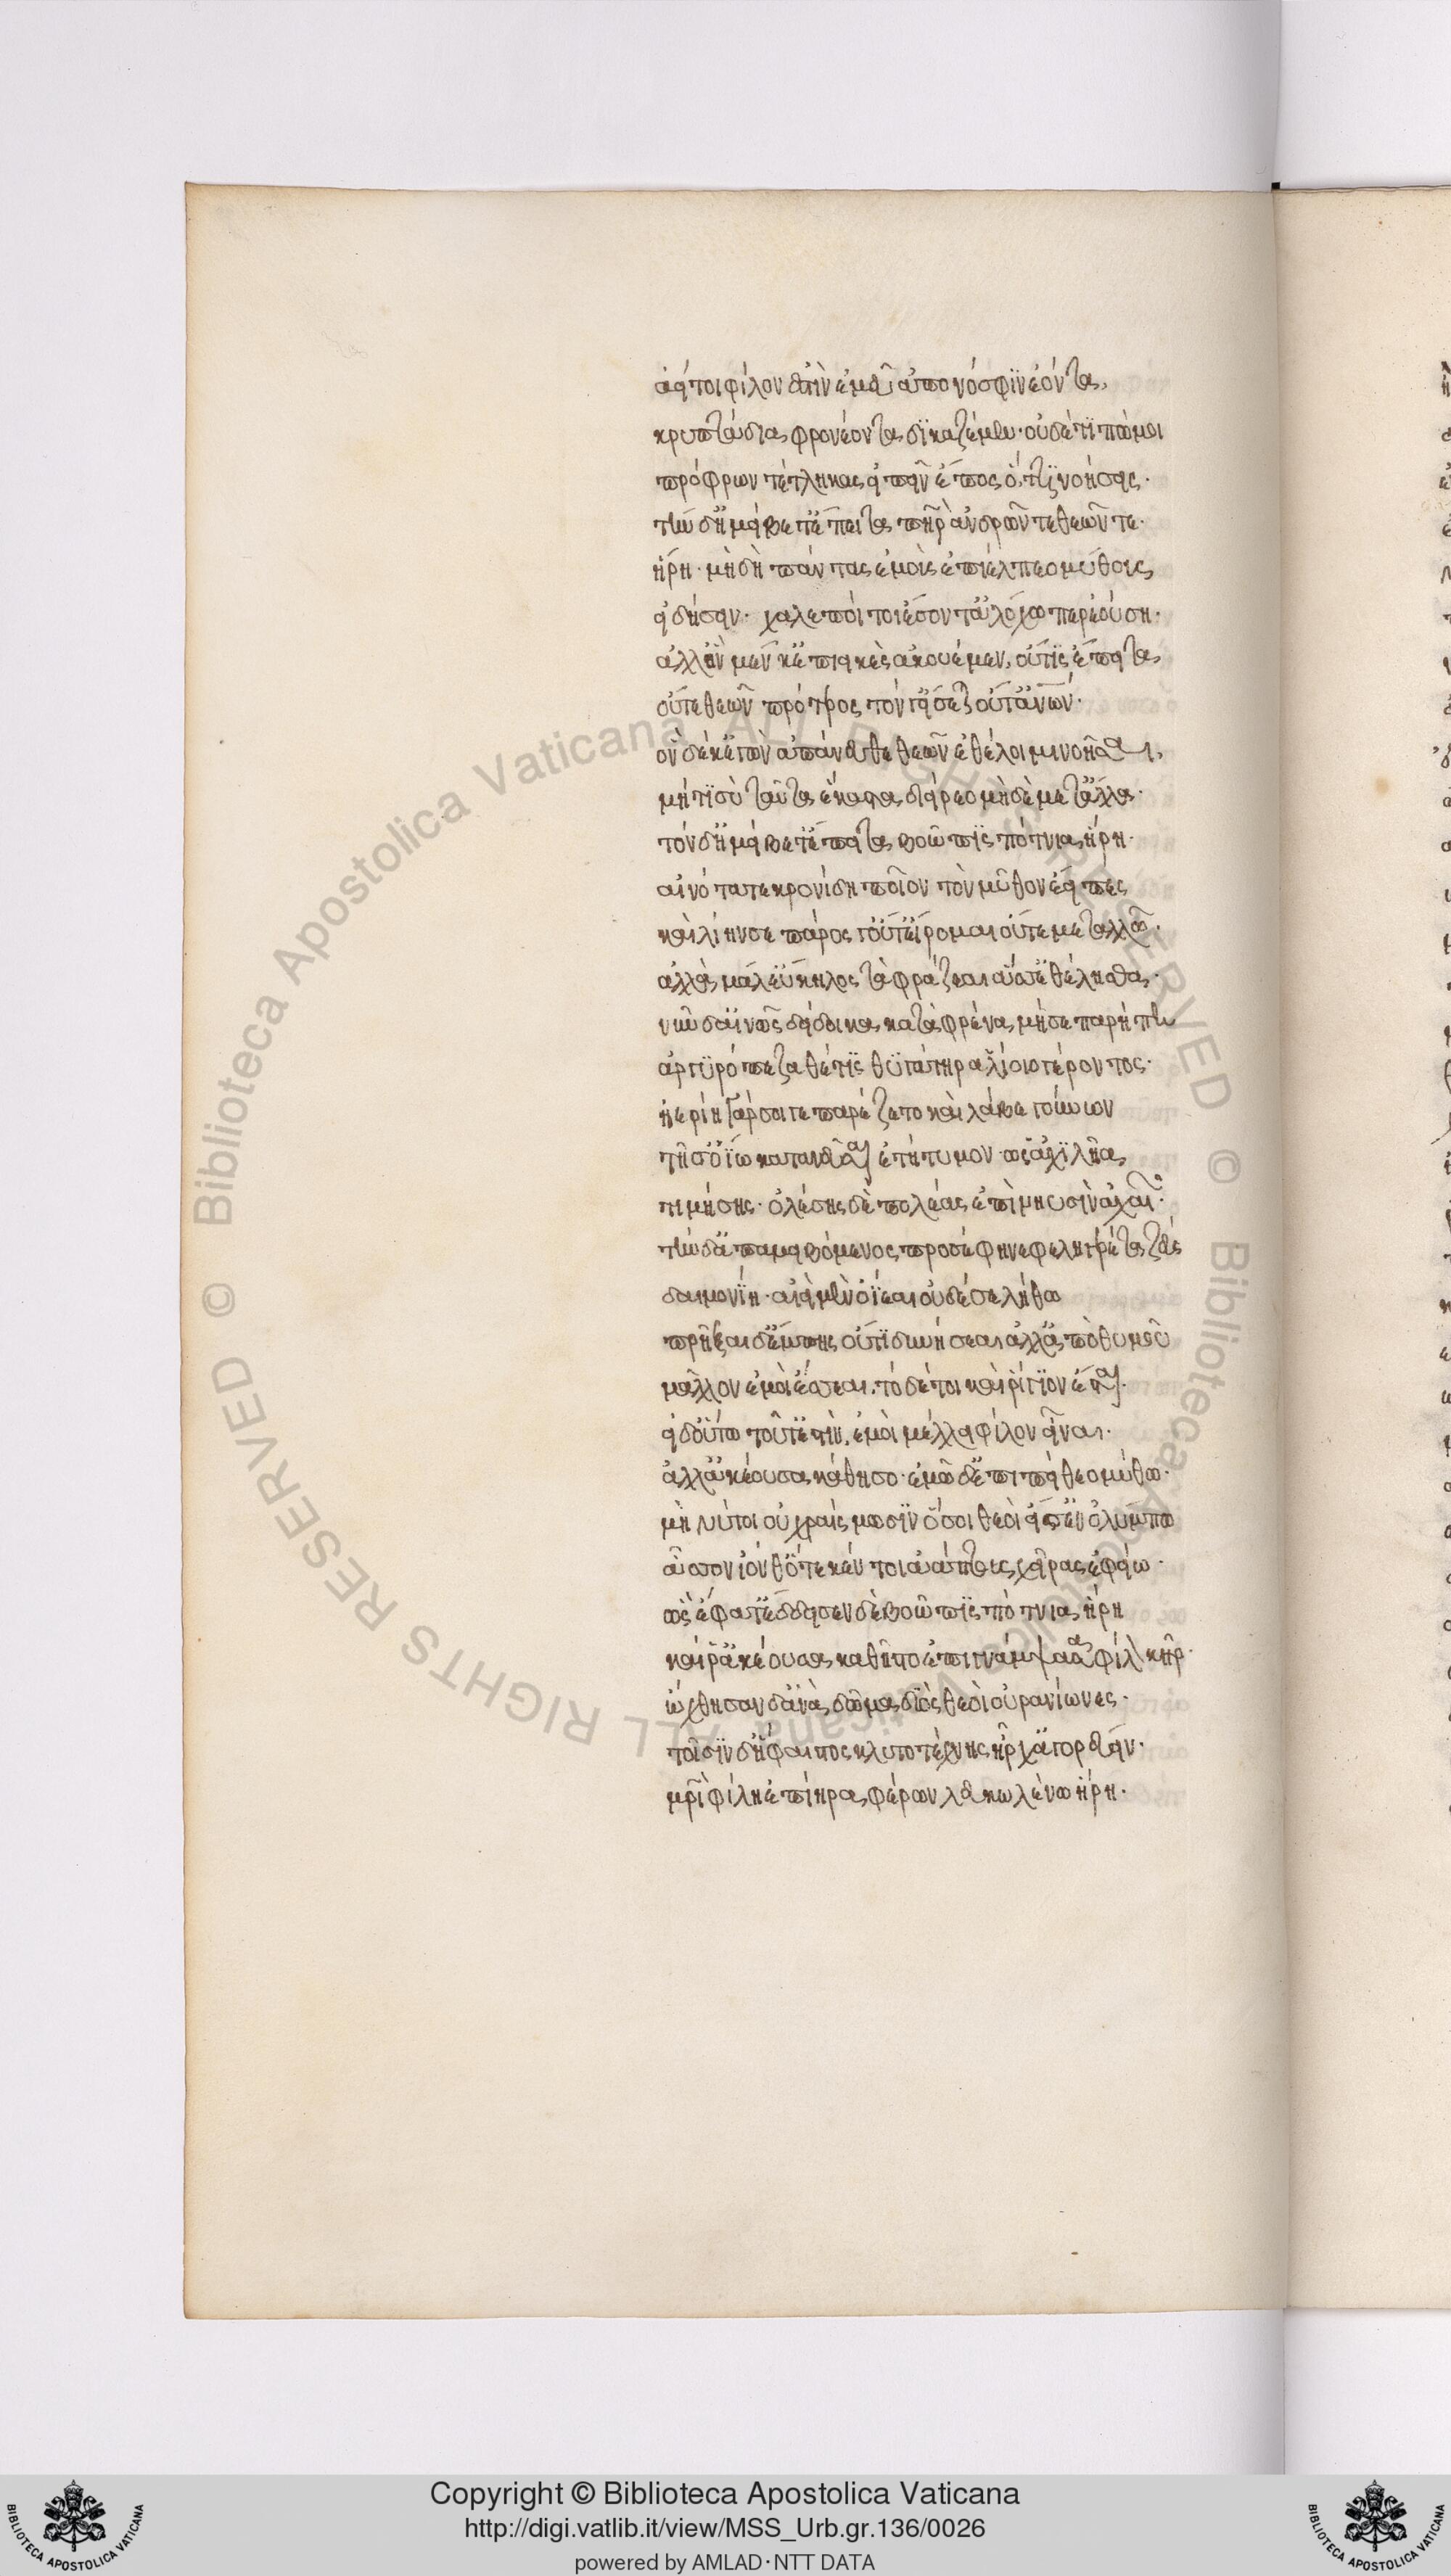 αἰεί τοι φίλον ἐστὶν ἐμεῦ ἀπονόσφιν ἐόντα,
κρυπτάδια φρονέοντα δικαζέμεν· οὐδέ τί πώ μοι
πρόφρων τέτληκας εἰπεῖν ἔπος ὅ,ττι νοήσεις·
τὴν δ' ἠμείβετ' ἔπειτα πατὴρ ἀνδρῶν τε θεῶν τε·
ἥρη· μὴ δὴ πάντας ἐμοὺς ἐπιέλπεο μύθους
εἰδήσειν· χαλεποί τοι ἔσοντ' ἀλόχῳ περ ἐούση·
ἀλλ' ὃν μέν κ' ἐπιεικὲς ἀκουέμεν, οὔτις ἔπειτα
οὔτε θεῶν πρότερος τόν γ' εἴσεται οὔτ' ἀνθρώπων·
ὃν δέ κ' ἐγὼν ἀπάνευθε θεῶν ἐθέλοιμι νοῆσαι,
μήτι σὺ ταῦτα ἕκαστα διείρεο μηδὲ μετάλλα·
τὸν δ' ἠμείβετ' ἔπειτα βοῶπις πότνια ἥρη·
αἰνότατε κρονίδη ποῖον τὸν μῦθον ἔειπες
καὶ λίην σε πάρος γ' οὔτ' εἴρομαι οὔτε μεταλλῶ·
ἀλλὰ μάλ' εὔκηλος τὰ φράζεαι ἅσσ' ἐθέλησθα·
νῦν δ' αἰνῶς δείδοικα κατὰ φρένα μή σε παρείπη
ἀργυρόπεζα θέτις θυγάτηρ ἁλίοιο γέροντος·
ἠερίη γὰρ σοί γε παρέζετο καὶ λάβε γούνων
τῇ σ' ὀΐω κατανεῦσαι ἐτήτυμον ὡς ἀχιλῆα
τιμήσης· ὀλέσης δὲ πολέας ἐπὶ νηυσὶν ἀχαιῶν·
τὴν δ' ἀπαμειβόμενος προσέφη νεφεληγερέτα ζεύς
δαιμονίη· αἰεὶ μὲν ὀΐεαι οὐδέ σε λήθω
πρῆξαι δ' ἔμπης οὔτι δυνήσεαι ἀλλ' ἀπὸ θυμοῦ
μᾶλλον ἐμοὶ ἔσεαι· τὸ δέ τοι καὶ ῥίγιον ἔσται·
εἰ δ' οὕτω τοῦτ' ἐστὶν, ἐμοὶ μέλλει φίλον εἶναι·
ἀλλ' ἀκέουσα κάθησο· ἐμῷ δ' ἐπιπείθεο μύθω·
μὴ νύ τοι οὐ χραίσμωσιν ὅσοι θεοὶ εἰσ' ἐν ὀλύμπω
ἆσσον ἰόνθ' ὅτε κέν τοι ἀάπτους χεῖρας ἐφείω·
ὣς ἔφατ' ἔδδεισεν δὲ βοῶπις πότνια ἥρη
καί ῥ' ἀκέουσα καθῆστο ἐπιγνάμψασα φίλον κῆρ·
ὤχθησαν δ' ἀνὰ δῶμα διὸς θεοὶ οὐρανίωνες·
τοῖσιν δ' ἥφαιστος κλυτοτέχνης ἦρχ' ἀγορεύειν·
μητρὶ φίλη ἐπίηρα φέρων λευκωλένω ἥρη·
Copyright © Biblioteca Apostolica Vaticana
http://digi.vatlib.it/view/MSS_Urb.gr.136/0026
powered by AMLAD·NTT DATA